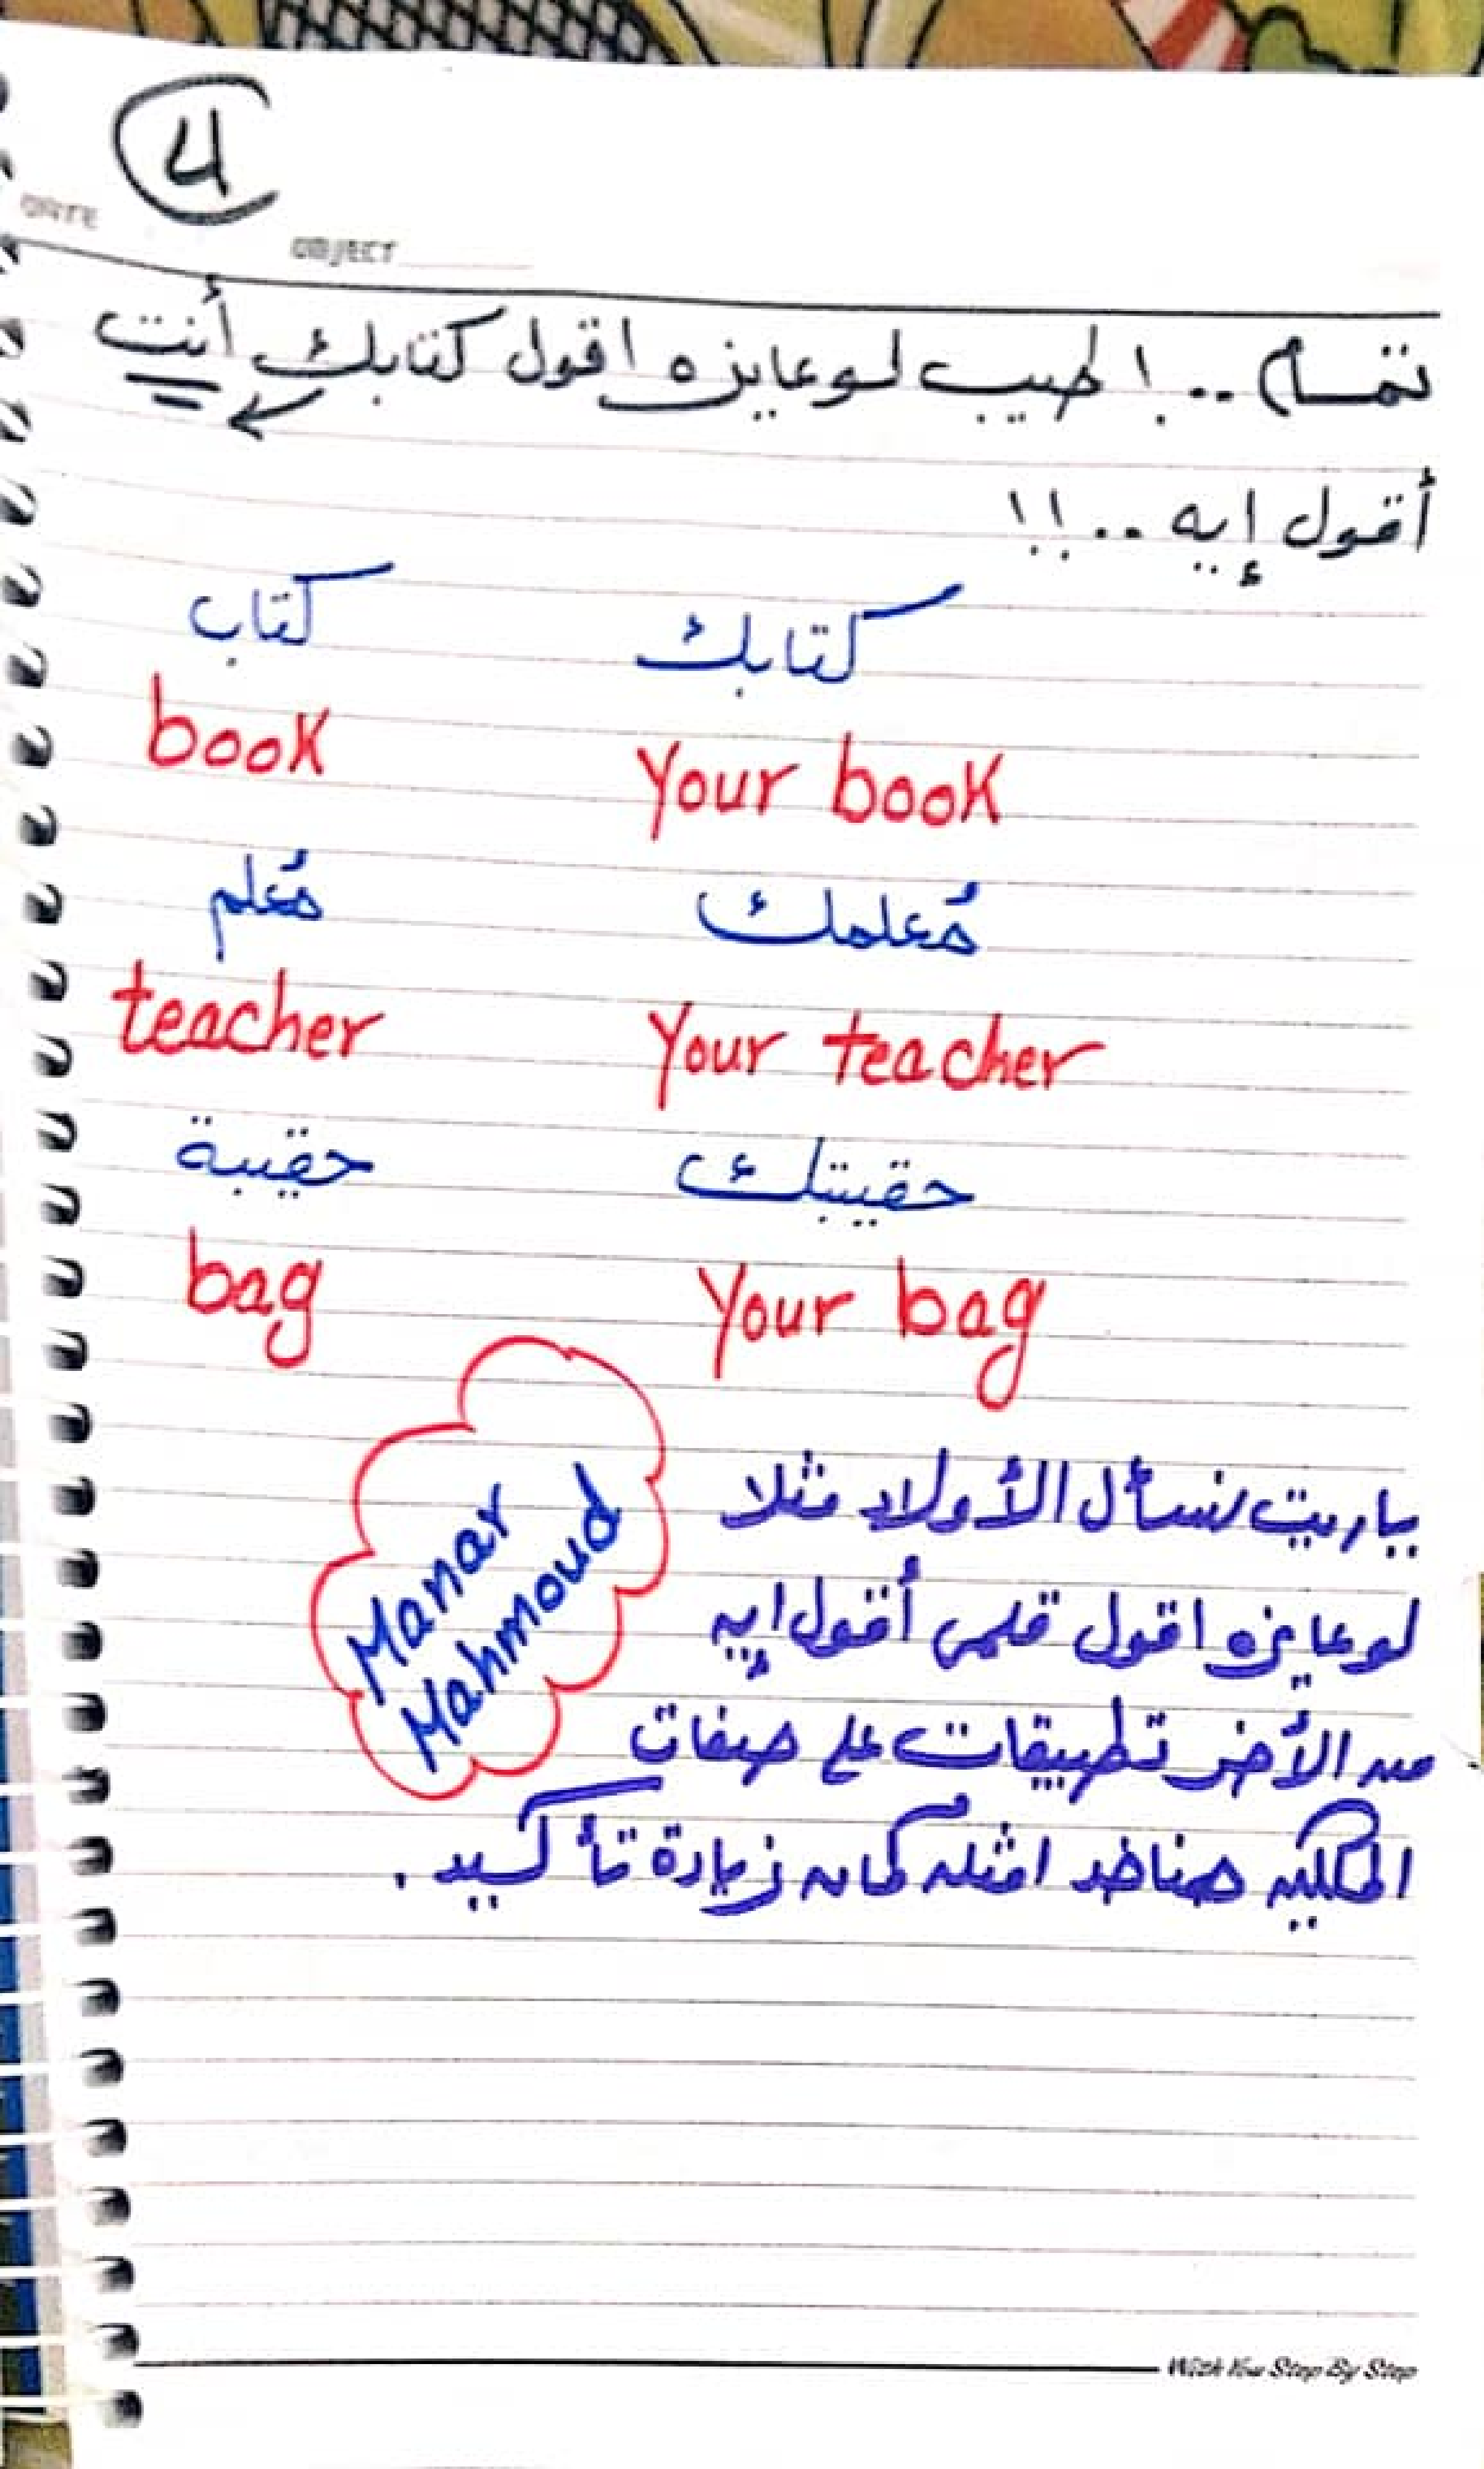 4
DATE
OBJECT
تمام .. ! طيب لو عايزه اقول كتابك أنت
أقول إيه .. !!
كتاب كتابك
book Your book
مُعلم مُعلمك
teacher Your teacher
حقيبة حقيبتك
bag Your bag
ياريت نسأل الأولاد مثلا
لو عايزه اقول قلمى أقول إيه
من الأخر تطبيقات على صفات
الملكيه هناخد امثله كمان زيادة تأكيد .
Manar
Mahmoud
With You Step By Step